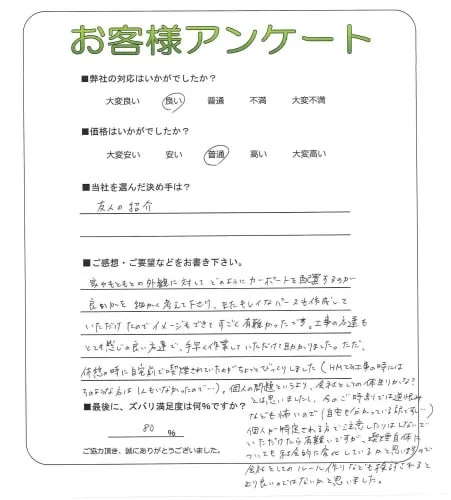 お客様アンケート
■弊社の対応はいかがでしたか？
大変良い 良い 普通 不満 大変不満
■価格はいかがでしたか？
大変安い 安い 普通 高い 大変高い
■当社を選んだ決め手は？
友人の紹介
■ご感想・ご要望などをお書き下さい。
家やもともとの外観に対して どのようにカーポートを配置するのが
良いかを 細かく考えて下さり、またキレイなパースも作成して
いただけたのでイメージもできてすごく有難かったです。工事の方達も
とても感じの良い方達で、手早く作業していただけて助かりました。ただ、
休憩の時に自宅前で喫煙されていたがちょっとびっくりしました（HMでの工事の時には
そのような方は1人もいなかったので…）。個人の問題というより、会社としての体質かな？
とは思いましたし、今のご時勢では逆恨み
なども怖いので（自宅も分かっている訳ですし…）
個人が特定される方で注意したりはしないで
いただけたら有難いですが、喫煙自体に
ついても社会的に変化していると思いますので
会社としてのルール作りなども検討されると
より良いのではないかと思いました。
■最後に、ズバリ満足度は何％ですか？
80 %
ご協力頂き、誠にありがとうございました。